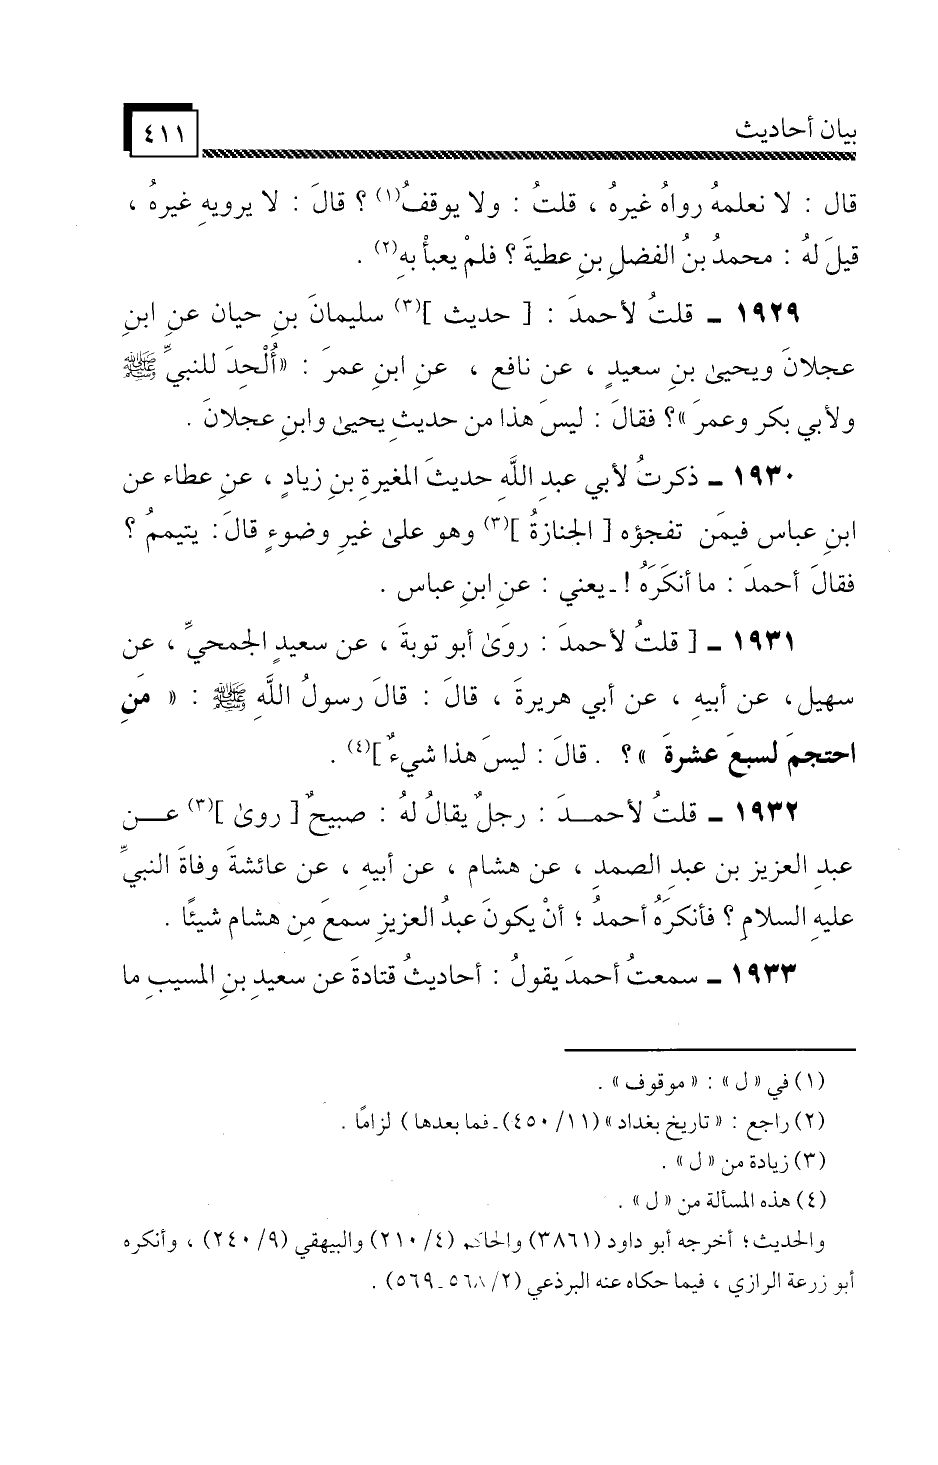 بيان أحاديث
٤١١
قال : لا نعلمهُ رواهُ غيرهُ ، قلتُ : ولا يوقفُ(١) ؟ قالَ : لا يرويهِ غيرهُ ،
قيلَ لهُ : محمدُ بنُ الفضلِ بنِ عطيةَ ؟ فلمْ يعبأْ بهِ(٢) .
١٩٢٩ ـ قلتُ لأحمدَ : [ حديث ](٣) سليمانَ بنِ حيان عنِ ابنِ
عجلانَ ويحيىٰ بنِ سعيدٍ ، عن نافع ، عنِ ابنِ عمرَ : «أُلْحِدَ للنبيِّ ﷺ
ولأبي بكر وعمرَ »؟ فقالَ : ليسَ هذا من حديثِ يحيىٰ وابنِ عجلانَ .
١٩٣٠ ـ ذكرتُ لأبي عبدِ اللَّهِ حديثَ المغيرةِ بنِ زيادٍ ، عنِ عطاء عن
ابنِ عباس فيمَن تفجؤه [ الجنازةُ ](٣) وهو علىٰ غيرِ وضوءٍ قالَ : يتيممُ ؟
فقالَ أحمدَ : ما أنكَرَهُ ! ـ يعني : عنِ ابنِ عباس .
١٩٣١ ـ [ قلتُ لأحمدَ : روَىٰ أبو توبةَ ، عن سعيدٍ الجمحيِّ ، عن
سهيل، عن أبيهِ ، عن أبي هريرةَ ، قالَ : قالَ رسولُ اللَّهِ ﷺ : « مَنِ
احتجمَ لسبعَ عشرةَ »؟ . قالَ : ليسَ هذا شيءٌ ](٤) .
١٩٣٢ ـ قلتُ لأحمـدَ : رجلٌ يقالُ لهُ : صبيحٌ [ روىٰ ](٣) عـن
عبدِ العزيزِ بن عبدِ الصمدِ ، عن هشام ، عن أبيهِ ، عن عائشةَ وفاةَ النبيِّ
عليهِ السلامِ ؟ فأنكرَهُ أحمدُ ؛ أنْ يكونَ عبدُ العزيزِ سمعَ مِن هشام شيئًا .
١٩٣٣ ـ سمعتُ أحمدَ يقولُ : أحاديثُ قتادةَ عن سعيدِ بنِ المسيبِ ما
(١) في «ل» : «موقوف» .
(٢) راجع : «تاريخ بغداد» (١١/ ٤٥٠) ـ فما بعدها ) لزامًا .
(٣) زيادة من «ل» .
(٤) هذه المسألة من «ل» .
والحديث؛ أخرجه أبو داود (٣٨٦١) والحاكم (٤/ ٢١٠) والبيهقي (٩/ ٢٤٠) ، وأنكره
أبو زرعة الرازي ، فيما حكاه عنه البرذعي (٢/ ٥٦٨ ـ ٥٦٩) .